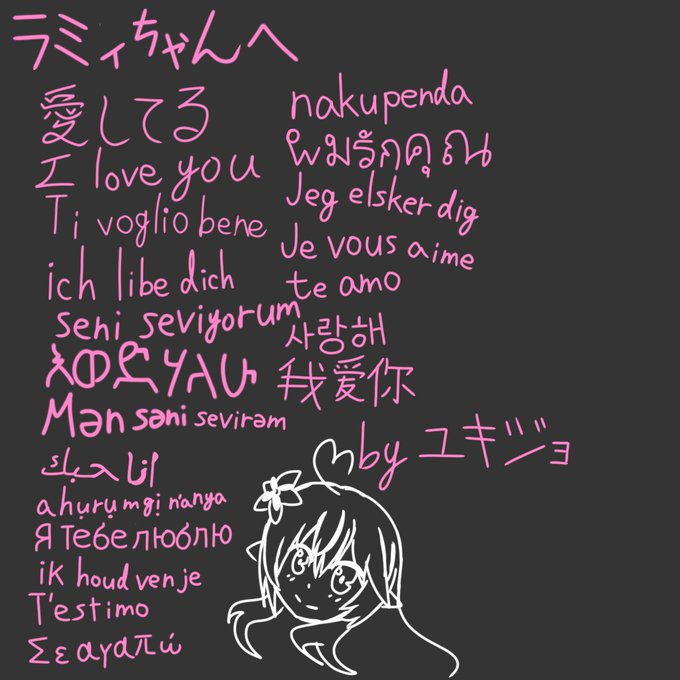 ラミィちゃんへ
愛してる
I love you
Ti voglio bene
ich libe dich
seni seviyorum
እወድሃለሁ
Mən səni sevirəm
انا حبك
ahụrụ mgị n'anya
Я тебе люблю
ik houd ven je
T'estimo
Σε αγαπώ
nakupenda
ผมรักคุณ
Jeg elsker dig
Je vous aime
te amo
사랑해
我爱你
by ユキジョ